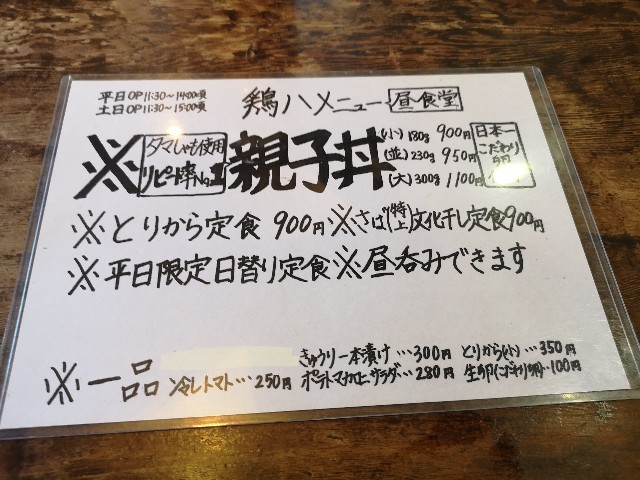 平日OP11:30～14:00頃
土日OP11:30～15:00頃
鶏ハメニュー 昼食堂
※ タマしゃも使用
リピート率No.1
親子丼
(小) 180g 900円
(並) 230g 950円
(大) 300g 1100円
日本一
こだわり
卵
※とりから定食 900円 ※さば(特上)文化干し定食900円
※平日限定日替り定食※昼呑みできます
きゅうり一本漬け…300円 とりから(小)…350円
※一品 冷しトマト…250円 ポテトマカロニサラダ…280円 生卵(こだわり卵)…100円